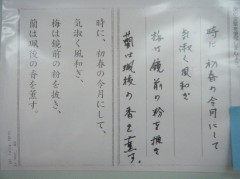 時に 初春の令月にして
気淑く風和ぎ
梅は鏡前の粉を披き
蘭は珮後の香を薫す。
時に、初春の令月にして、
気淑く風和ぎ、
梅は鏡前の粉を披き、
蘭は珮後の香を薫す。